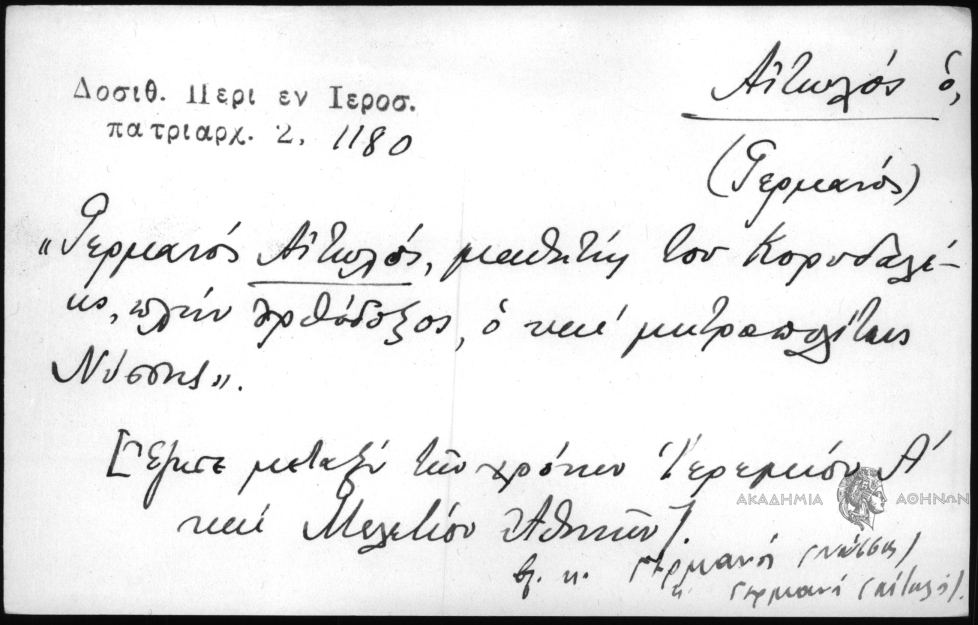 Δοσιθ. Περι εν Ιεροσ.
πατριαρχ. 2, 1180
Αἰτωλός ὁ,
(Γερμανός)
«Γερμανός Αἰτωλός, μαθητής του Κορυδαλέ-
ως, πλήν ὀρθόδοξος, ὁ καί μητροπολίτης
Νύσσης».
[Ἔζησε μεταξύ τῶν χρόνων Ἱερεμίου Α΄
καί Μελετίου Ἀθηνῶν].
ΑΚΑΔΗΜΙΑ ΑΘΗΝΩΝ
βλ. κ. Γερμανός (Νύσσης)
κ. Γερμανό (Αἰτωλό).